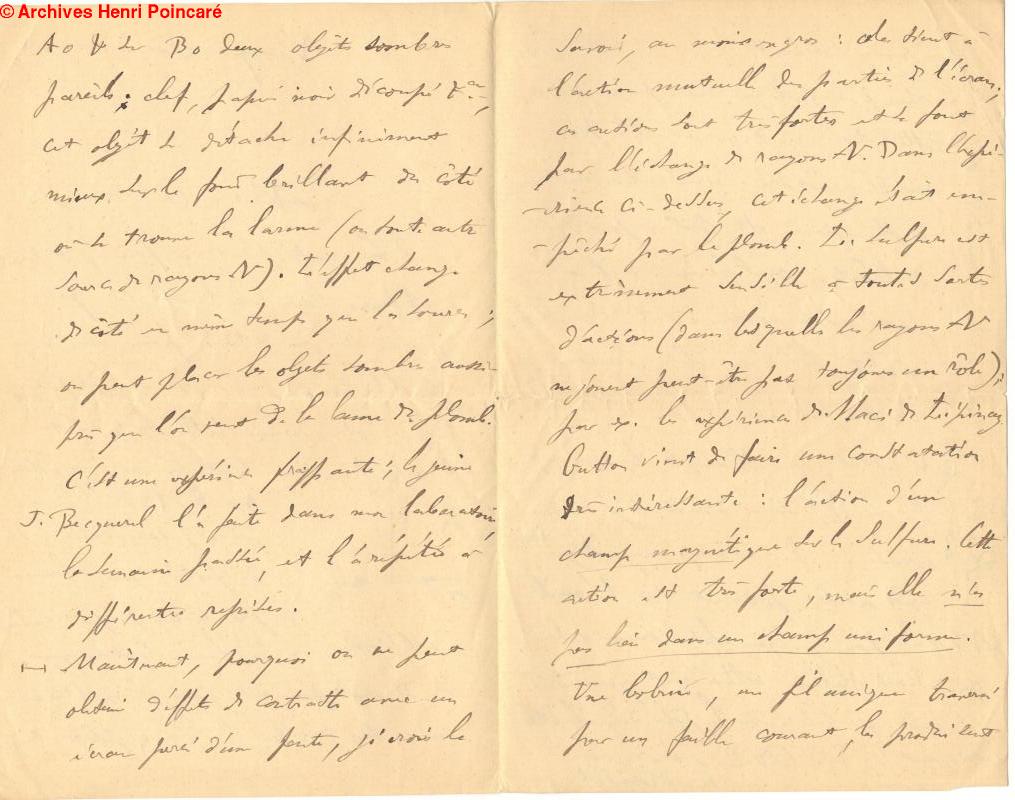 © Archives Henri Poincaré
Ao & sur Bo deux objets sombres
pareils : clef, papier noir découpé &a ;
cet objet se détache infiniment
mieux sur le fond brillant du côté
où se trouve la larme (ou toute autre
source de rayons N). L'effet change
de côté en même temps que la source ;
on peut placer les objets sombres aussi
près que l'on veut de la lame de plomb.
C'est une expérience frappante ; le jeune
J. Becquerel l'a faite dans mon laboratoire
la semaine passée, et l'a répétée à
différentes reprises.
Maintenant, pourquoi on ne peut
obtenir d'effets de contraste avec un
écran percé d'une fente, je crois le
savoir, au moins en gros : cela tient à
l'action mutuelle des parties de l'écran ;
ces actions sont très fortes et se font
par l'échange de rayons N. Dans l'expé-
-rience ci-dessus, cet échange était em-
-pêché par le plomb. Le sulfure est
extrêmement sensible à toutes sortes
d'actions (dans lesquelles les rayons N
ne jouent peut-être pas toujours un rôle) ;
par ex. les expériences de Macé de Lépinay.
Gutton vient de faire une constatation
très intéressante : l'action d'un
champ magnétique sur le sulfure. Cette
action est très forte, mais elle n'a
pas lieu dans un champ uniforme.
Une bobine, un fil unique traversé
par un faible courant, la produisent